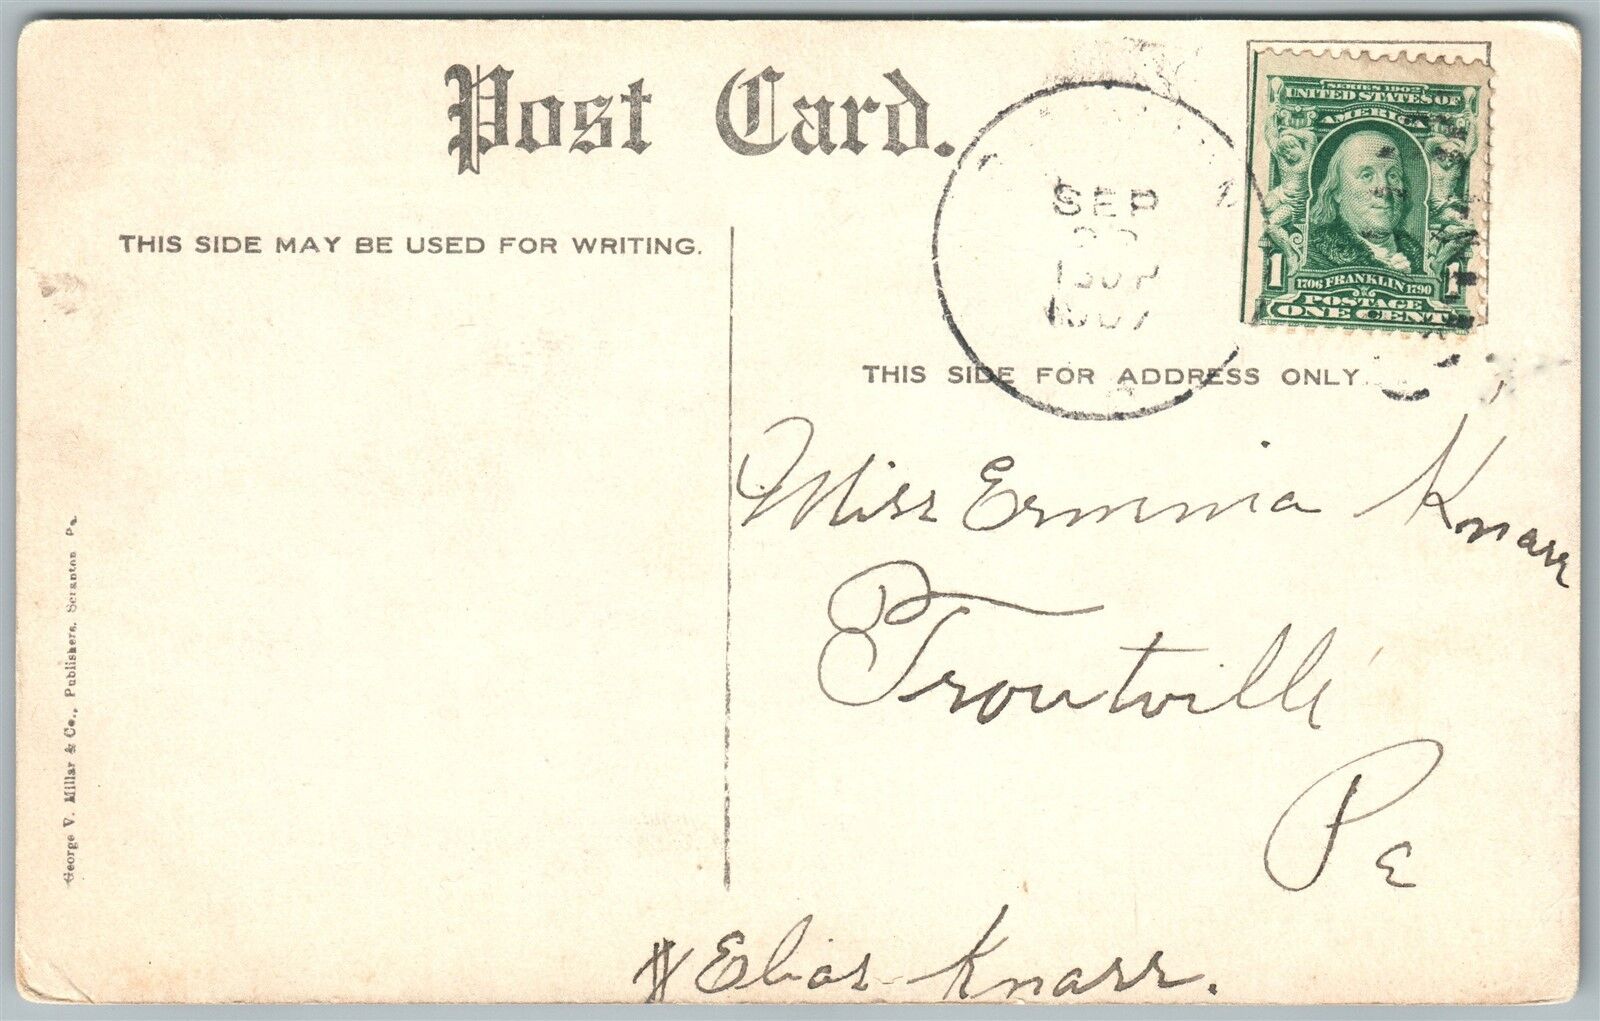 Post Card.
THIS SIDE MAY BE USED FOR WRITING.
SEP
1907
SERIES 1902
UNITED STATES OF
AMERICA
1 1
1706 FRANKLIN 1790
POSTAGE
ONE CENT
THIS SIDE FOR ADDRESS ONLY
Miss Ermmia Knarr
Troutville
Pa
Elias Knarr.
George V. Millar & Co., Publishers, Scranton Pa.